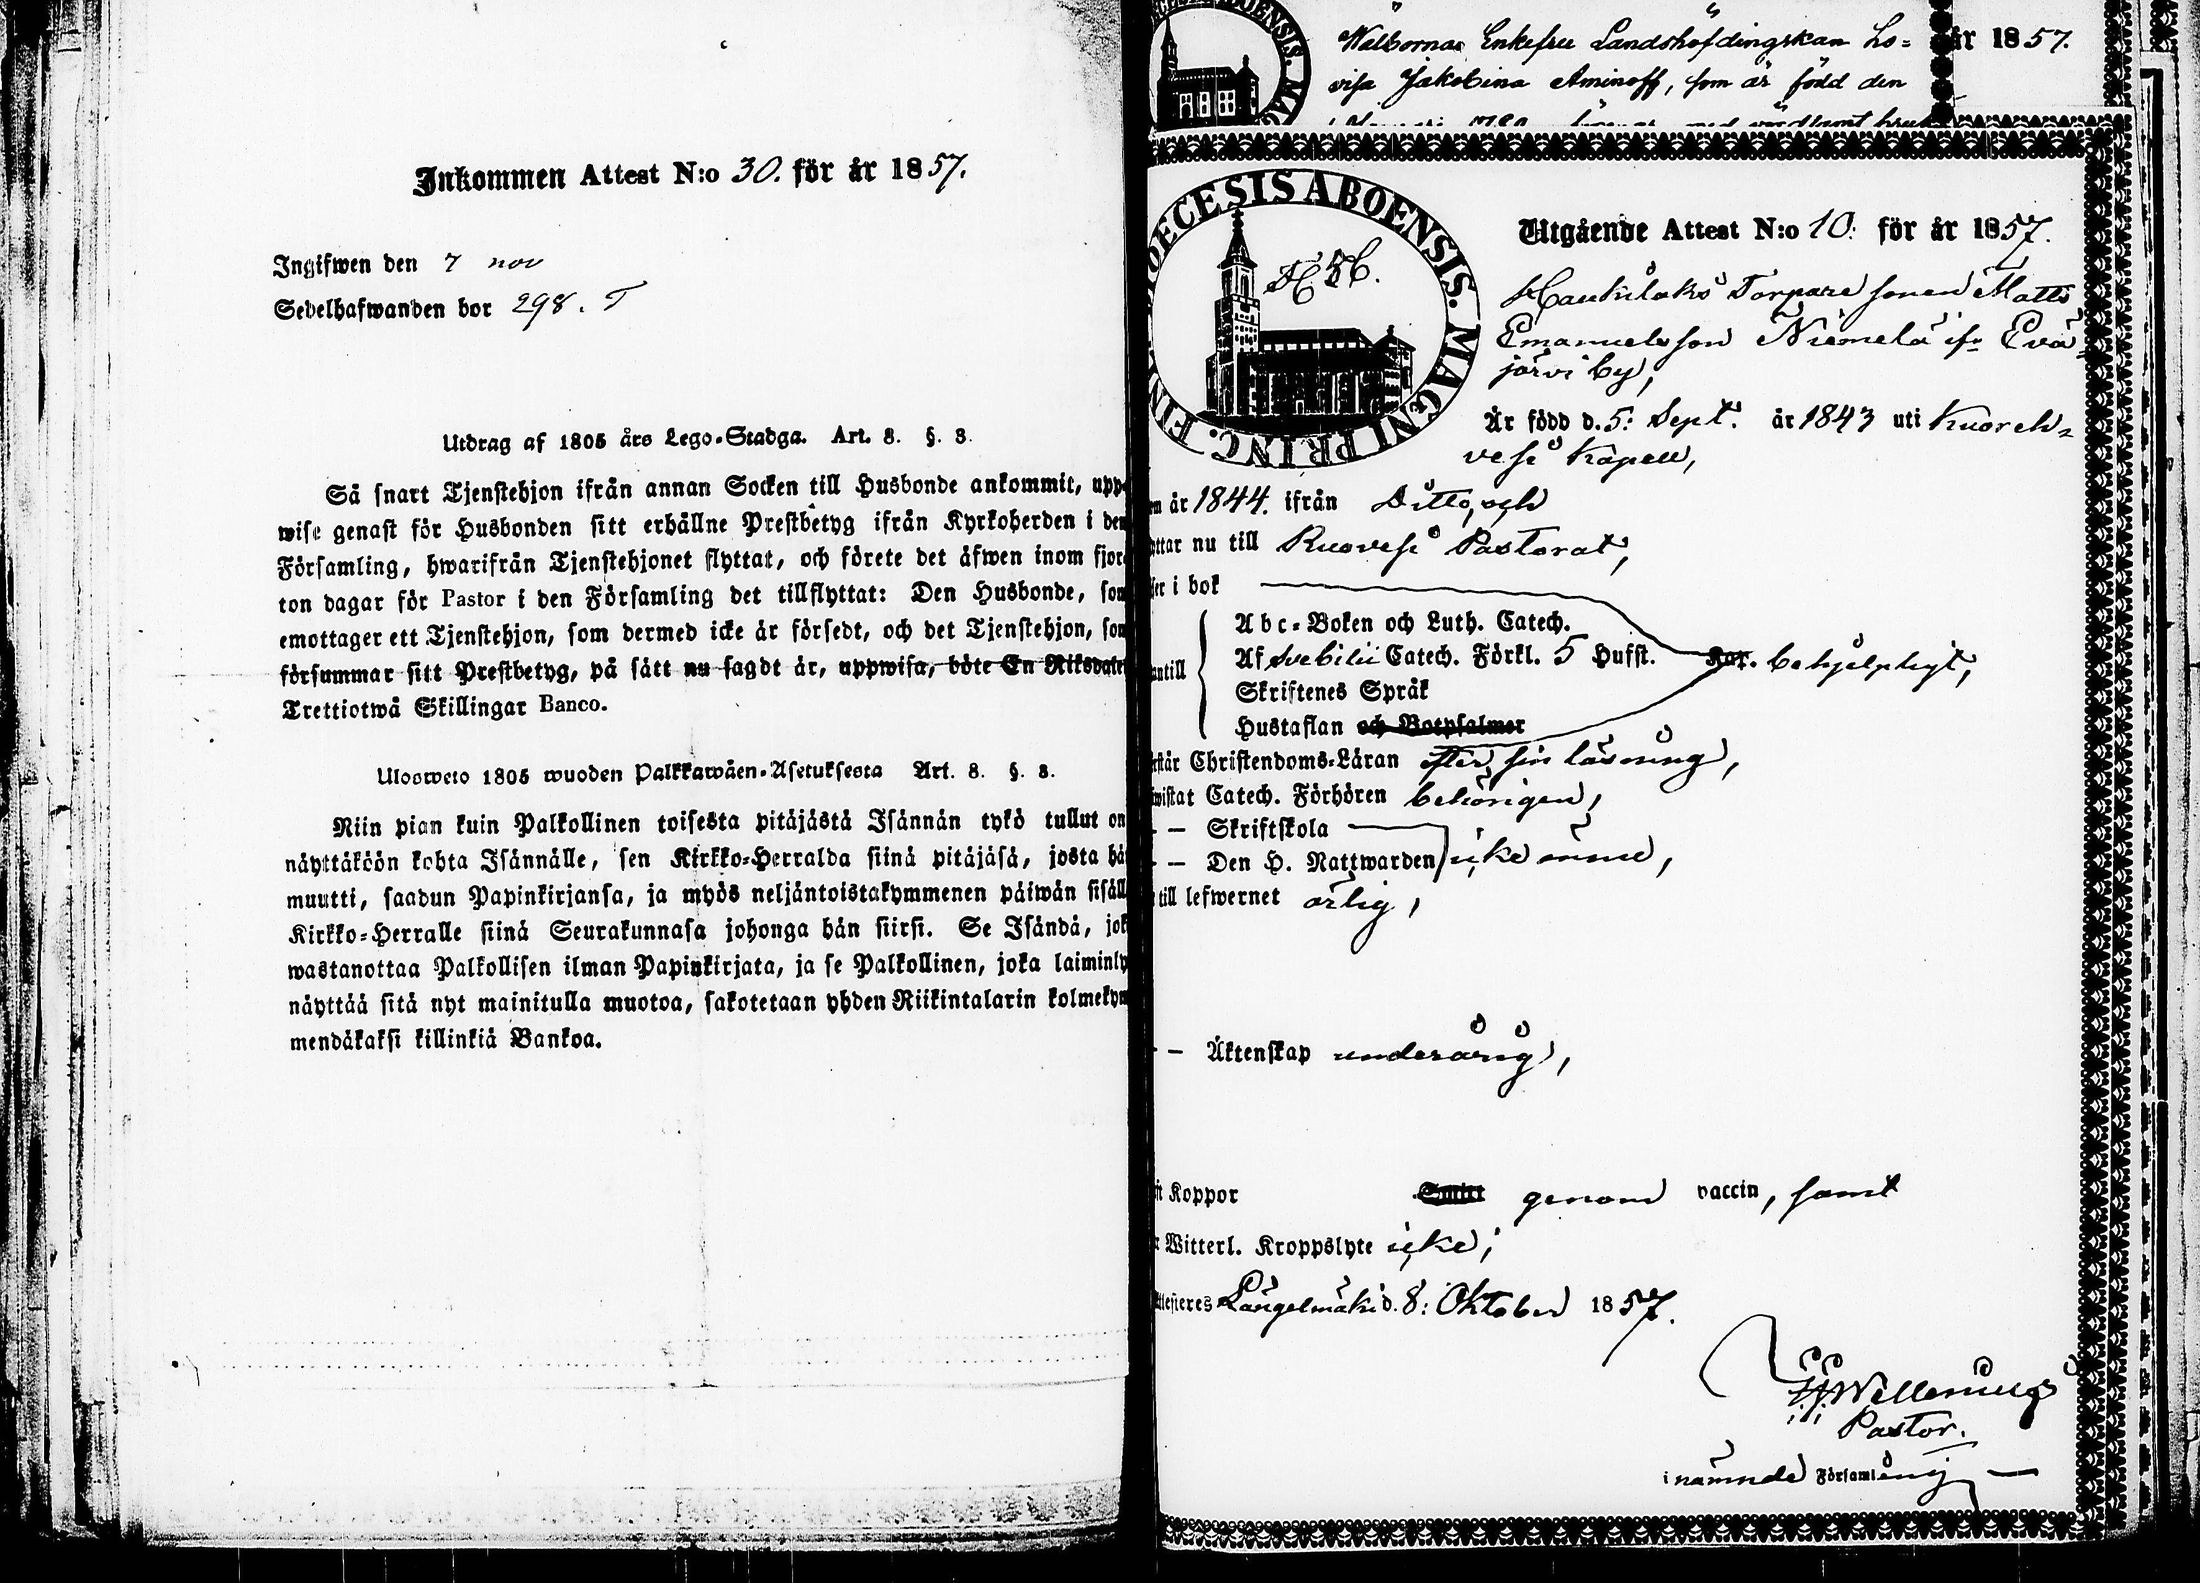 Inkommen Attest N:o 30. för år 1857.
Ingifwen den 7 nov
Sedelhafwanden bor 298. T
Utdrag af 1805 års Lego-Stadga. Art. 8. §. 8.
Så snart Tjenstehjon ifrån annan Socken till Husbonde ankommit, upp-
wise genast för Husbonden sitt erhållne Prestbetyg ifrån Kyrkoherden i den
Församling, hwarifrån Tjenstehjonet flyttat, och förete det äfwen inom fjor-
ton dagar för Pastor i den Församling det tillflyttat: Den Husbonde, som
emottager ett Tjenstehjon, som dermed icke är försedt, och det Tjenstehjon, som
försummar sitt Prestbetyg, på sätt nu sagdt är, uppwisa, böte En Riksdaler
Trettiotwå Skillingar Banco.
Ulosweto 1805 wuoden Palkkawäen-Asetuksesta Art. 8. §. 8.
Niin pian kuin Palkollinen toisesta pitäjästä Isännän tykö tullut on
näyttäköön kohta Isännälle, sen Kirkko-Herralda siinä pitäjäsä, josta hä
muutti, saadun Papinkirjansa, ja myös neljäntoistakymmenen päiwän sisäll
Kirkko-Herralle siinä Seurakunnasa johonga hän siirsi. Se Isändä, jok
wastanottaa Palkollisen ilman Papinkirjata, ja se Palkollinen, joka laiminly
näyttää sitä nyt mainitulla muotoa, sakotetaan yhden Riikintalarin kolmekym
mendäkaksi killinkiä Bankoa.
Wälborna Enkefru Landshöfdingskan Lo=
visa Jakobina Aminoff, som är född den
år 1857.
DIOECESIS ABOENSIS. MAGNI PRINC. FIN
Utgående Attest N:o 10: för år 1857.
Torpare sonen Matts
Emanuelsson Niemelä ifr Evä=
järvi by,
Är född d. 5: Sept. år 1843 uti Kuoreh=
vesi Kapell,
m år 1844. ifrån Ditto, och
ttar nu till Ruovesi Pastorat,
ser i bok
Abc-Boken och Luth. Catech.
Af Svebilii Catech. Förkl. 5 Hufst. behjelpligt,
antill
Skriftenes Språk
Hustaflan och Botpsalmer
rstår Christendoms-Läran efter sin läsning,
wistat Catech. Förhören behörigen,
— Skriftskola
— Den H. Nattwarden icke ännu,
till lefwernet ärlig,
— Äktenskap underårig,
ft Koppor Smitt genom vaccin, samt
r Witterl. Kroppslyte icke;
ttesteres Längelmäki d. 8: Oktober 1857.
Pastor.
i nämnde Församling